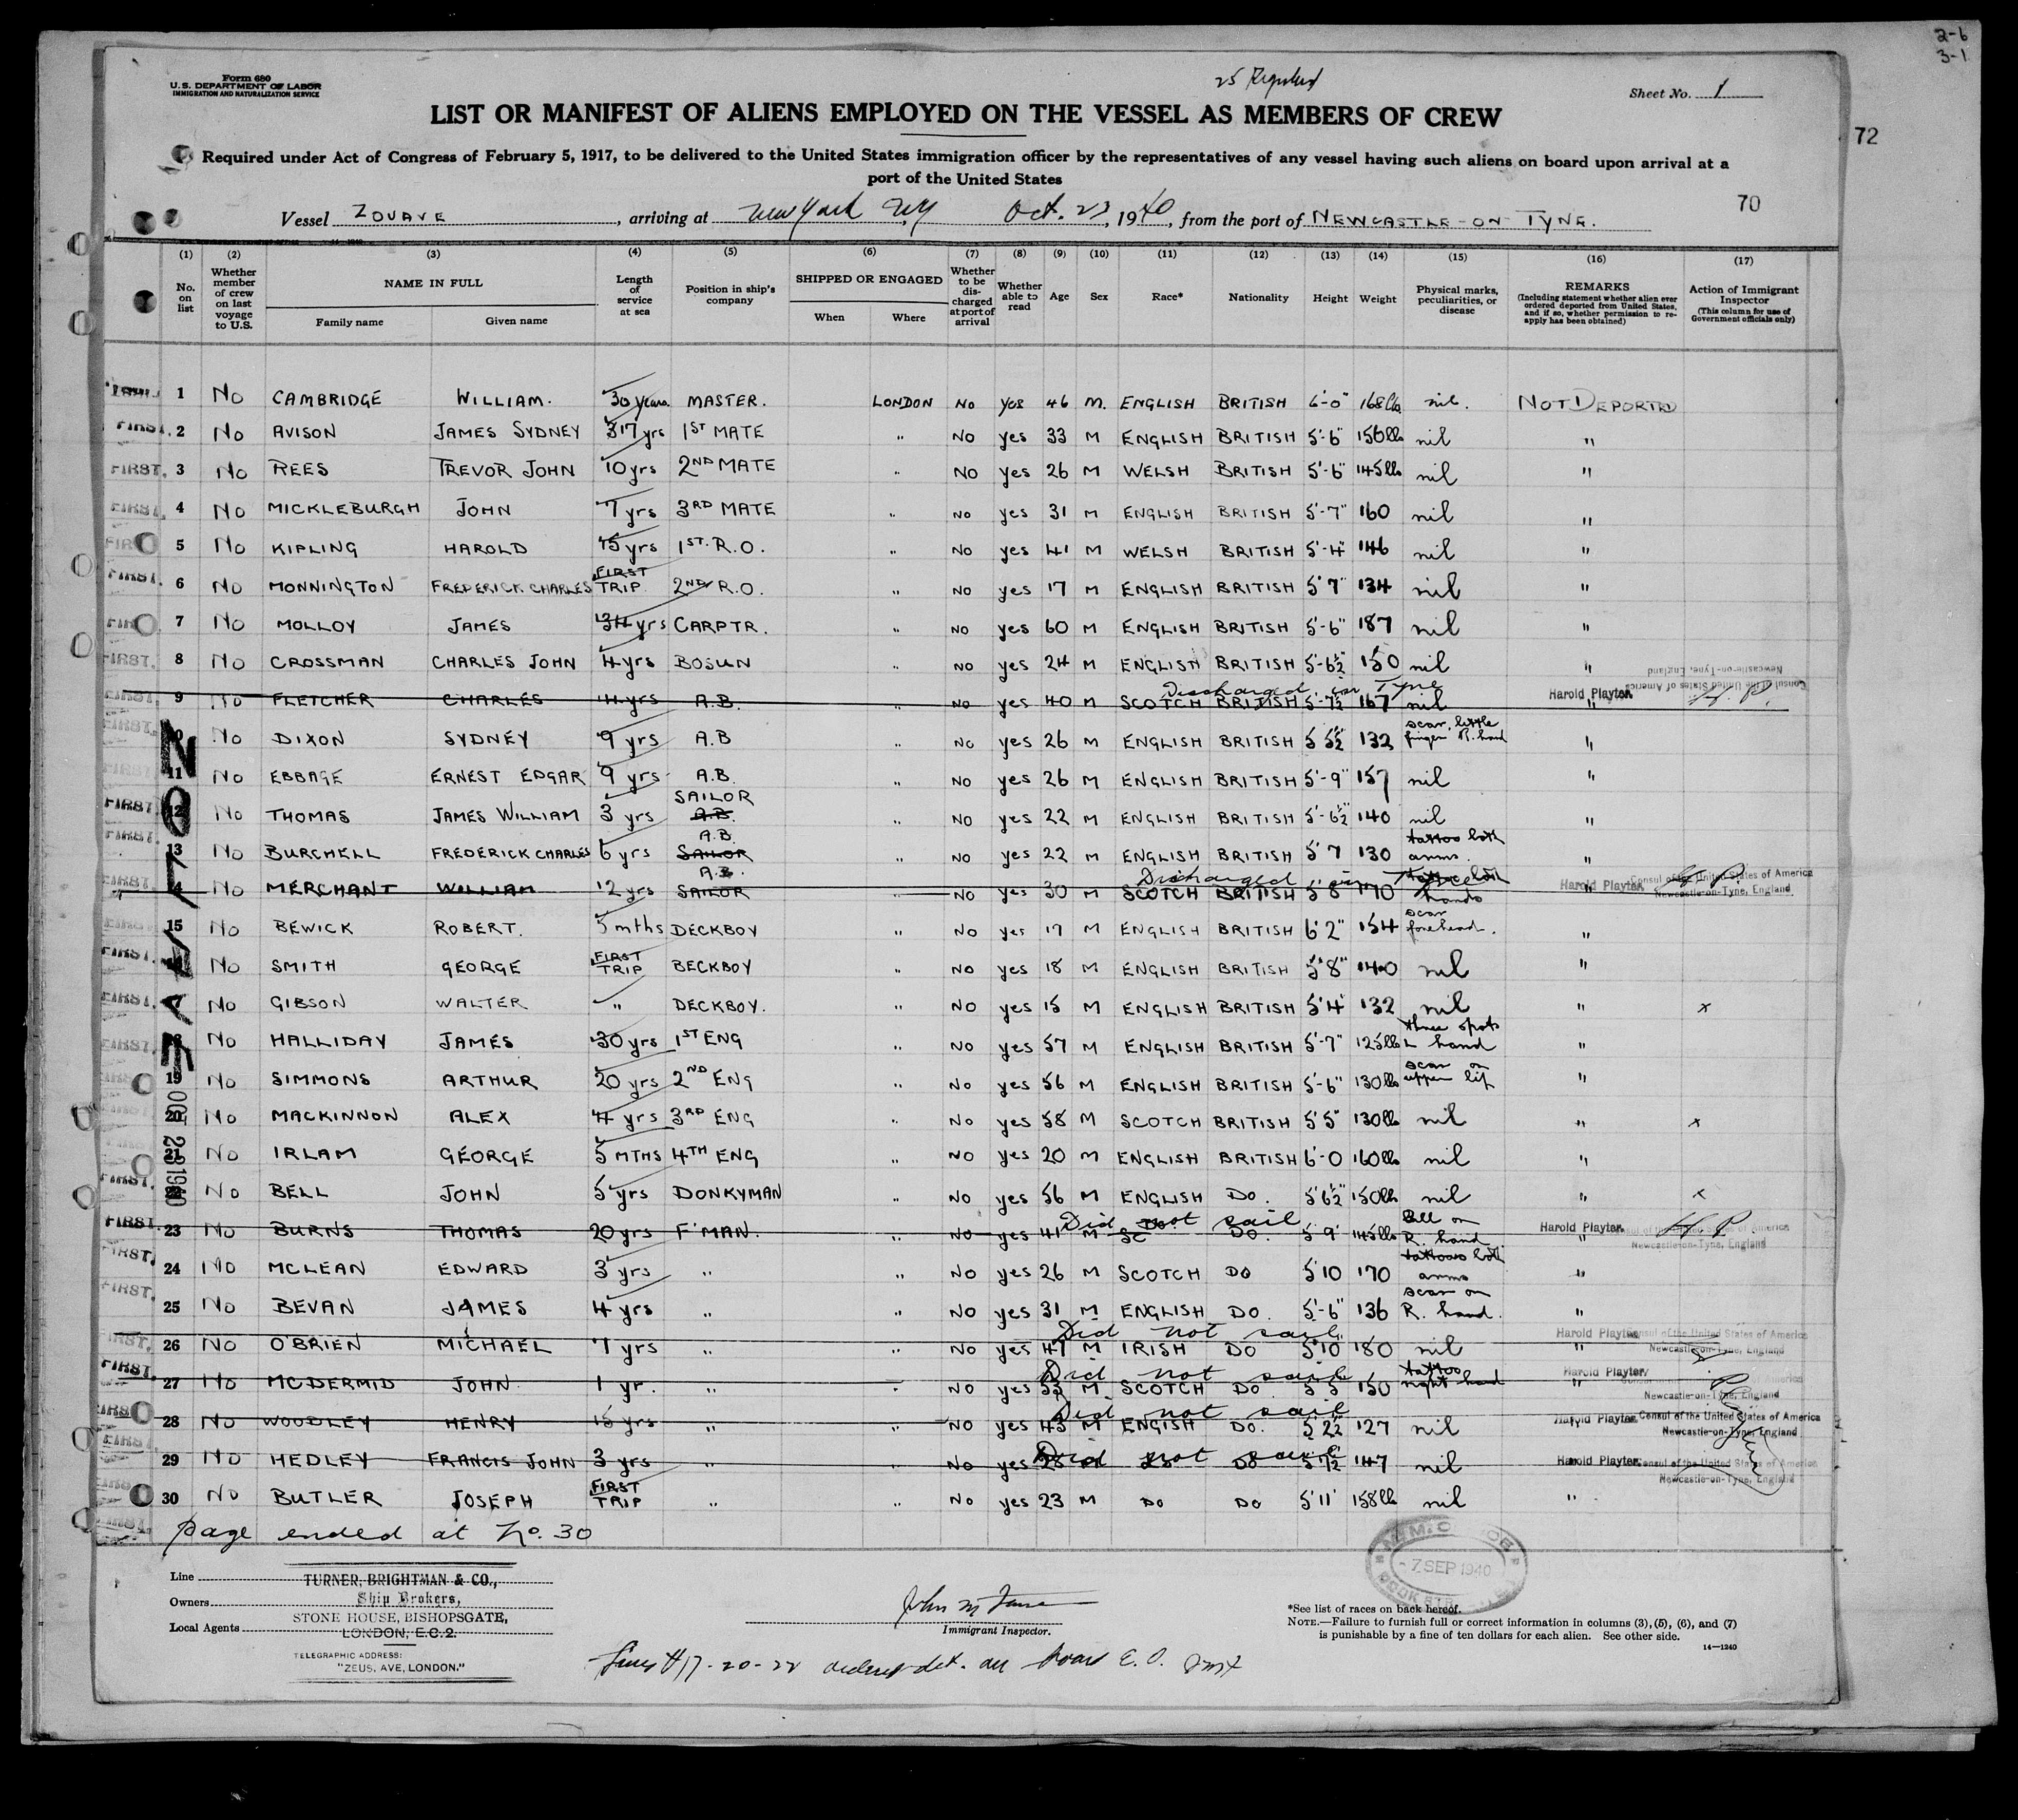 2-6
3-1
Form 680
U.S. DEPARTMENT OF LABOR
IMMIGRATION AND NATURALIZATION SERVICE
25
Sheet No. 1
LIST OR MANIFEST OF ALIENS EMPLOYED ON THE VESSEL AS MEMBERS OF CREW
72
Required under Act of Congress of February 5, 1917, to be delivered to the United States immigration officer by the representatives of any vessel having such aliens on board upon arrival at a
port of the United States
70
Vessel ZOUAVE, arriving at New York NY Oct. 23, 1940, from the port of NEWCASTLE-ON TYNE.
(1) (2) (3) (4) (5) (6) (7) (8) (9) (10) (11) (12) (13) (14) (15) (16) (17)
No. on list
Whether member of crew on last voyage to U.S.
NAME IN FULL
Family name Given name
Length of service at sea
Position in ship's company
SHIPPED OR ENGAGED
When Where
Whether to be discharged at port of arrival
Whether able to read
Age
Sex
Race*
Nationality
Height
Weight
Physical marks, peculiarities, or disease
REMARKS
(Including statement whether alien ever ordered deported from United States, and if so, whether permission to re-apply has been obtained)
Action of Immigrant Inspector
(This column for use of Government officials only)
1 No CAMBRIDGE WILLIAM. 30 years MASTER. LONDON No yes 46 M. ENGLISH BRITISH 6'-0" 168lb nil. NOT DEPORTED
FIRST. 2 No AVISON JAMES SYDNEY 17yrs 1ST MATE " NO yes 33 M ENGLISH BRITISH 5'-6" 156lb nil "
FIRST. 3 No REES TREVOR JOHN 10yrs 2ND MATE " NO yes 26 M WELSH BRITISH 5'-6" 145lb nil "
FIRST. 4 No MICKLEBURGH JOHN 7 yrs 3RD MATE " NO yes 31 M ENGLISH BRITISH 5'-7" 160 nil "
5 No KIPLING HAROLD 15yrs 1ST. R.O. " NO yes 41 M WELSH BRITISH 5'-4" 146 nil "
FIRST. 6 No MONNINGTON FREDERICK CHARLES FIRST TRIP 2ND R.O. " NO yes 17 M ENGLISH BRITISH 5'7" 134 nil "
7 No MOLLOY JAMES 34 yrs CARPTR. " NO yes 60 M ENGLISH BRITISH 5'-6" 187 nil "
FIRST. 8 No CROSSMAN CHARLES JOHN 4yrs BOSUN " NO yes 24 M ENGLISH BRITISH 5'-6½" 150 nil "
Discharged in Tyne
FIRST. 9 No FLETCHER CHARLES 14yrs A.B. " NO yes 40 M SCOTCH BRITISH 5'-7½ 167 nil " Harold Playter Consul of the United States of America Newcastle-on-Tyne, England H. P.
FIRST. 10 No DIXON SYDNEY 9 yrs A.B " No yes 26 M ENGLISH BRITISH 5 5½" 132 scar, little finger R. hand "
FIRST. 11 No EBBAGE ERNEST EDGAR 9 yrs A.B. " NO yes 26 M ENGLISH BRITISH 5'-9" 157 nil "
FIRST. 12 No THOMAS JAMES WILLIAM 3 yrs SAILOR A.B. " NO yes 22 M ENGLISH BRITISH 5'-6½" 140 nil "
FIRST. 13 No BURCHELL FREDERICK CHARLES 6yrs A.B. SAILOR " NO yes 22 M ENGLISH BRITISH 5'7 130 tattoo both arms. "
Discharged in Tyne
FIRST. 14 No MERCHANT WILLIAM 12 yrs A.B. SAILOR NO yes 30 M SCOTCH BRITISH 5'8" 170 hands " Harold Playter Consul of the United States of America Newcastle-on-Tyne, England H. P.
FIRST. 15 No BEWICK ROBERT. 5 mths DECKBOY " NO yes 17 M ENGLISH BRITISH 6'2" 154 scar forehead. "
FIRST. 16 No SMITH GEORGE FIRST TRIP BECKBOY " NO yes 18 M ENGLISH BRITISH 5'8" 140 nil "
FIRST. 17 No GIBSON WALTER " DECKBOY. " NO yes 15 M ENGLISH BRITISH 5'4" 132 nil " x
FIRST. 18 No HALLIDAY JAMES 30yrs 1ST ENG " NO yes 57 M ENGLISH BRITISH 5'-7" 125lb three spots L hand "
19 No SIMMONS ARTHUR 20 yrs 2ND ENG " NO yes 56 M ENGLISH BRITISH 5'-6" 130lb scar on upper lip "
20 No MACKINNON ALEX 4 yrs 3RD ENG " NO yes 58 M SCOTCH BRITISH 5'5" 130lb nil " x
21 No IRLAM GEORGE 5 MTHS 4TH ENG " NO yes 20 M ENGLISH BRITISH 6'-0 160lb nil "
FIRST. 22 No BELL JOHN 5 yrs DONKYMAN " NO yes 56 M ENGLISH DO. 5'6½" 150lb nil " x
Did not sail
FIRST. 23 No BURNS THOMAS 20yrs F'MAN. " NO yes 41 M SC DO. 5'9' 145lb R. hand " Harold Playter Consul of the United States of America Newcastle-on-Tyne, England H. P.
FIRST. 24 No MCLEAN EDWARD 3 yrs " " NO yes 26 M SCOTCH DO 5'10 170 tattoos both arms "
FIRST. 25 No BEVAN JAMES 4 yrs " " NO yes 31 M ENGLISH DO. 5'-6" 136 scar on R. hand. "
Did not sail
FIRST. 26 NO O'BRIEN MICHAEL 7 yrs " " NO yes 47 M IRISH DO 5'10 180 nil " Harold Playter Consul of the United States of America Newcastle-on-Tyne, England
Did not sail
FIRST. 27 No MCDERMID JOHN 1 yr. " " NO yes 53 M SCOTCH DO 5'5 150 tattoo right hand " Harold Playter Newcastle-on-Tyne, England
Did not sail
28 No WOODLEY HENRY 15 yrs " " NO yes 43 M ENGISH DO. 5 2½ 127 nil " Harold Playter Consul of the United States of America Newcastle-on-Tyne, England
Did not sail
FIRST. 29 No HEDLEY FRANCIS JOHN 3 yrs " " No yes DO 147 nil Harold Playter Consul of the United States of America Newcastle-on-Tyne, England
30 No BUTLER JOSEPH FIRST TRIP " " No yes 23 M DO DO 5'11' 158lb nil "
page ended at No. 30
OCT 23 1940
Line
Owners
Local Agents
TURNER, BRIGHTMAN & CO.,
Ship Brokers,
STONE HOUSE, BISHOPSGATE,
LONDON, E.C.2.
TELEGRAPHIC ADDRESS:
"ZEUS, AVE, LONDON."
Immigrant Inspector.
7 SEP 1940
*See list of races on back hereof.
NOTE.—Failure to furnish full or correct information in columns (3), (5), (6), and (7)
is punishable by a fine of ten dollars for each alien. See other side.
14—1240
Lines #17-20-22 ordered det. on board